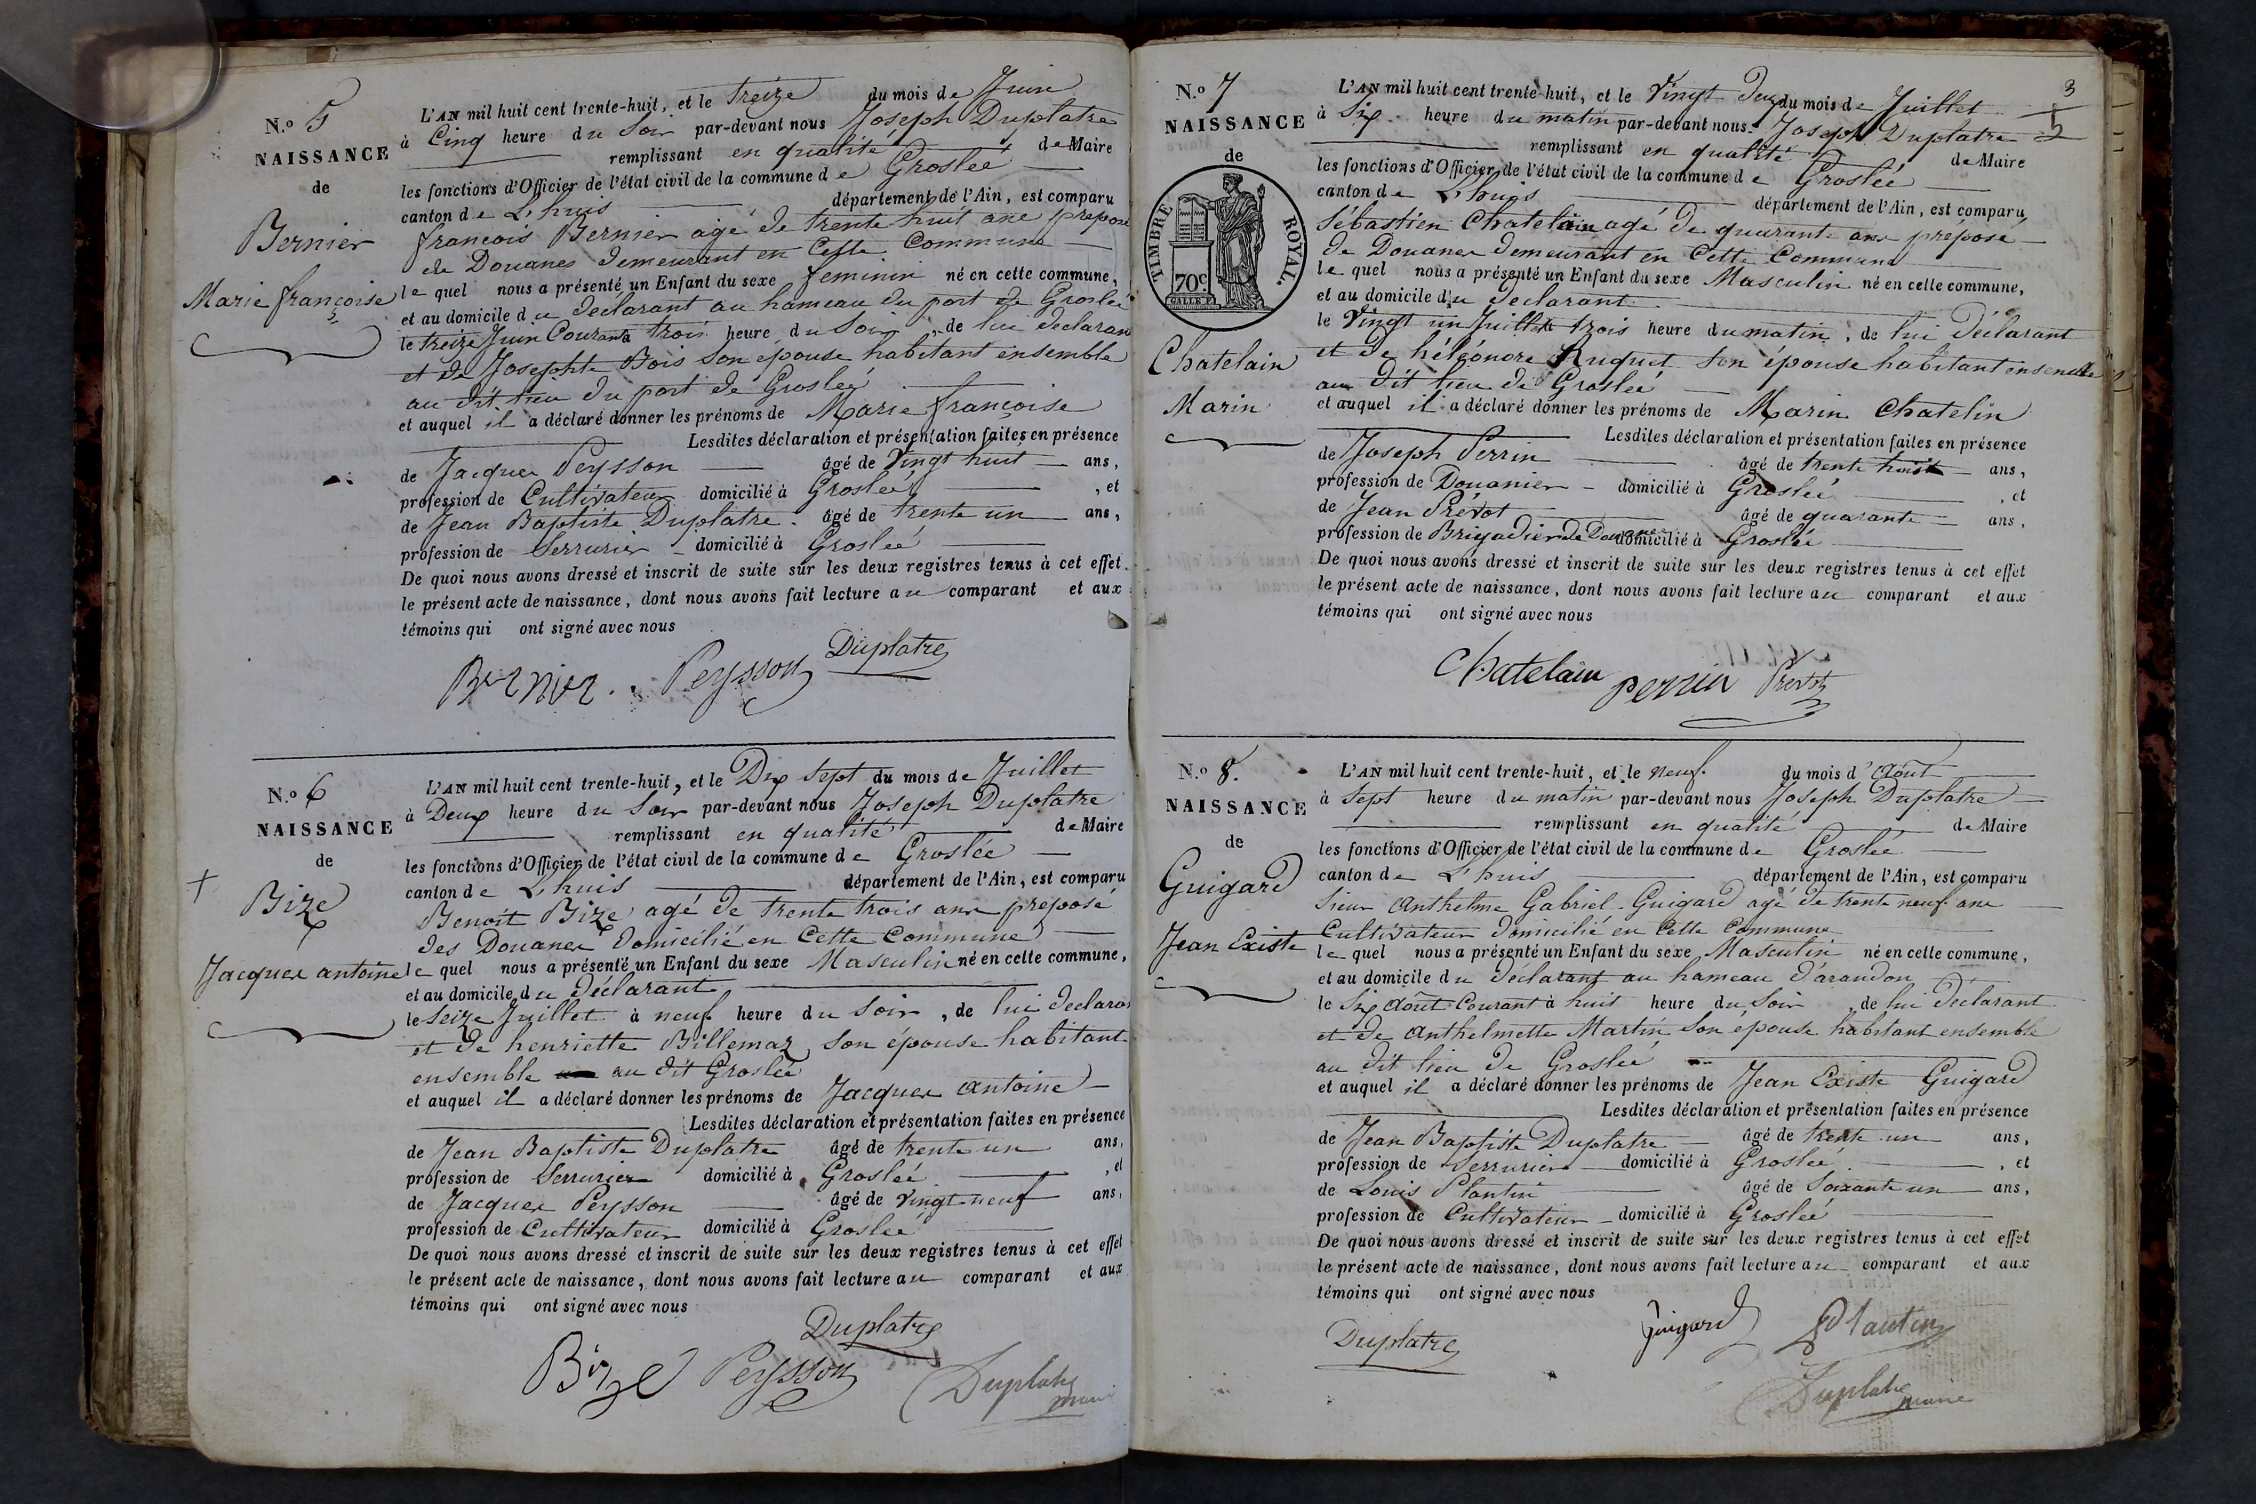 N.º 5
NAISSANCE
de
Bernier
Marie françoise
L'AN mil huit cent trente-huit, et le treize du mois de Juin
à Cinq heure du Soir par-devant nous Joseph Duplatre
remplissant en qualité de Maire
les fonctions d'Officier de l'état civil de la commune de Groslée
canton de L'huis département de l'Ain, est comparu
françois Bernier agé de trente huit ans préposé
de Douanes demeurant en Cette Commune
lequel nous a présenté un Enfant du sexe feminin né en cette commune,
et au domicile du déclarant au hameau du port de Groslée
le treize Juin Courant trois heure du Soir, de lui déclarant
et de Josephte Bois son épouse habitant ensemble
au dit lieu du port de Groslée
et auquel il a déclaré donner les prénoms de Marie françoise
Lesdites déclaration et présentation faites en présence
de Jacques Peysson âgé de Vingt huit ans,
profession de Cultivateur domicilié à Groslée, et
de Jean Baptiste Duplatre âgé de trente un ans,
profession de Serrurier domicilié à Groslée
De quoi nous avons dressé et inscrit de suite sur les deux registres tenus à cet effet
le présent acte de naissance, dont nous avons fait lecture au comparant et aux
témoins qui ont signé avec nous
Bernier Peysson Duplatre
N.º 6
NAISSANCE
de
Bize
Jacques antoine
L'AN mil huit cent trente-huit, et le Dix Sept du mois de Juillet
à Deux heure du Soir par-devant nous Joseph Duplatre
remplissant en qualité de Maire
les fonctions d'Officier de l'état civil de la commune de Groslée
canton de L'huis département de l'Ain, est comparu
Benoît Bize agé de trente trois ans préposé
des Douanes Domicilié en Cette Commune
lequel nous a présenté un Enfant du sexe Masculin né en cette commune,
et au domicile du déclarant
le Seize Juillet à neuf heure du Soir, de lui déclarant
et de henriette Billemaz son épouse habitant
ensemble au dit Groslée
et auquel il a déclaré donner les prénoms de Jacques antoine
Lesdites déclaration et présentation faites en présence
de Jean Baptiste Duplatre âgé de trente un ans,
profession de Serrurier domicilié à Groslée, et
de Jacques Peysson âgé de Vingt neuf ans,
profession de Cultivateur domicilié à Groslée
De quoi nous avons dressé et inscrit de suite sur les deux registres tenus à cet effet
le présent acte de naissance, dont nous avons fait lecture au comparant et aux
témoins qui ont signé avec nous
Duplatre
Bize Peysson Duplatre
maire
3
N.º 7
NAISSANCE
de
TIMBRE ROYAL.
70c
Chatelain
Marin
L'AN mil huit cent trente-huit, et le Vingt Deux du mois de Juillet
à Six heure du matin par-devant nous Joseph Duplatre
remplissant en qualité de Maire
les fonctions d'Officier de l'état civil de la commune de Groslée
canton de L'huis département de l'Ain, est comparu
Sébastien Chatelain agé de quarante ans préposé
de Douanes demeurant en Cette Commune
lequel nous a présenté un Enfant du sexe Masculin né en cette commune,
et au domicile du déclarant
le Vingt un Juillet trois heure du matin, de lui Déclarant
et de héléonore Ruguet son épouse habitant ensemble
au dit lieu de Groslée
et auquel il a déclaré donner les prénoms de Marin Chatelin
Lesdites déclaration et présentation faites en présence
de Joseph Perrin âgé de trente huit ans,
profession de Douanier domicilié à Groslée, et
de Jean Prévot âgé de quarante ans,
profession de Brigadier de Douanes domicilié à Groslée
De quoi nous avons dressé et inscrit de suite sur les deux registres tenus à cet effet
le présent acte de naissance, dont nous avons fait lecture au comparant et aux
témoins qui ont signé avec nous
Chatelain perrin Prevot
N.º 8.
NAISSANCE
de
Guigard
Jean Existe
L'AN mil huit cent trente-huit, et le neuf du mois d'Août
à Sept heure du matin par-devant nous Joseph Duplatre
remplissant en qualité de Maire
les fonctions d'Officier de l'état civil de la commune de Groslée
canton de L'huis département de l'Ain, est comparu
Sieur Anthelme Gabriel Guigard agé de trente neuf ans
Cultivateur Domicilié en Cette Commune
lequel nous a présenté un Enfant du sexe Masculin né en cette commune,
et au domicile du déclarant au hameau d'arandon
le Six Août Courant à huit heure du Soir, de lui déclarant
et de Anthelmette Martin son épouse habitant ensemble
au dit lieu de Groslée
et auquel il a déclaré donner les prénoms de Jean Existe Guigard
Lesdites déclaration et présentation faites en présence
de Jean Baptiste Duplatre âgé de trente un ans,
profession de Serrurier domicilié à Groslée, et
de Louis Plantin âgé de Soixante un ans,
profession de Cultivateur domicilié à Groslée
De quoi nous avons dressé et inscrit de suite sur les deux registres tenus à cet effet
le présent acte de naissance, dont nous avons fait lecture au comparant et aux
témoins qui ont signé avec nous
Duplatre Guigard Plantin
Duplatre
maire